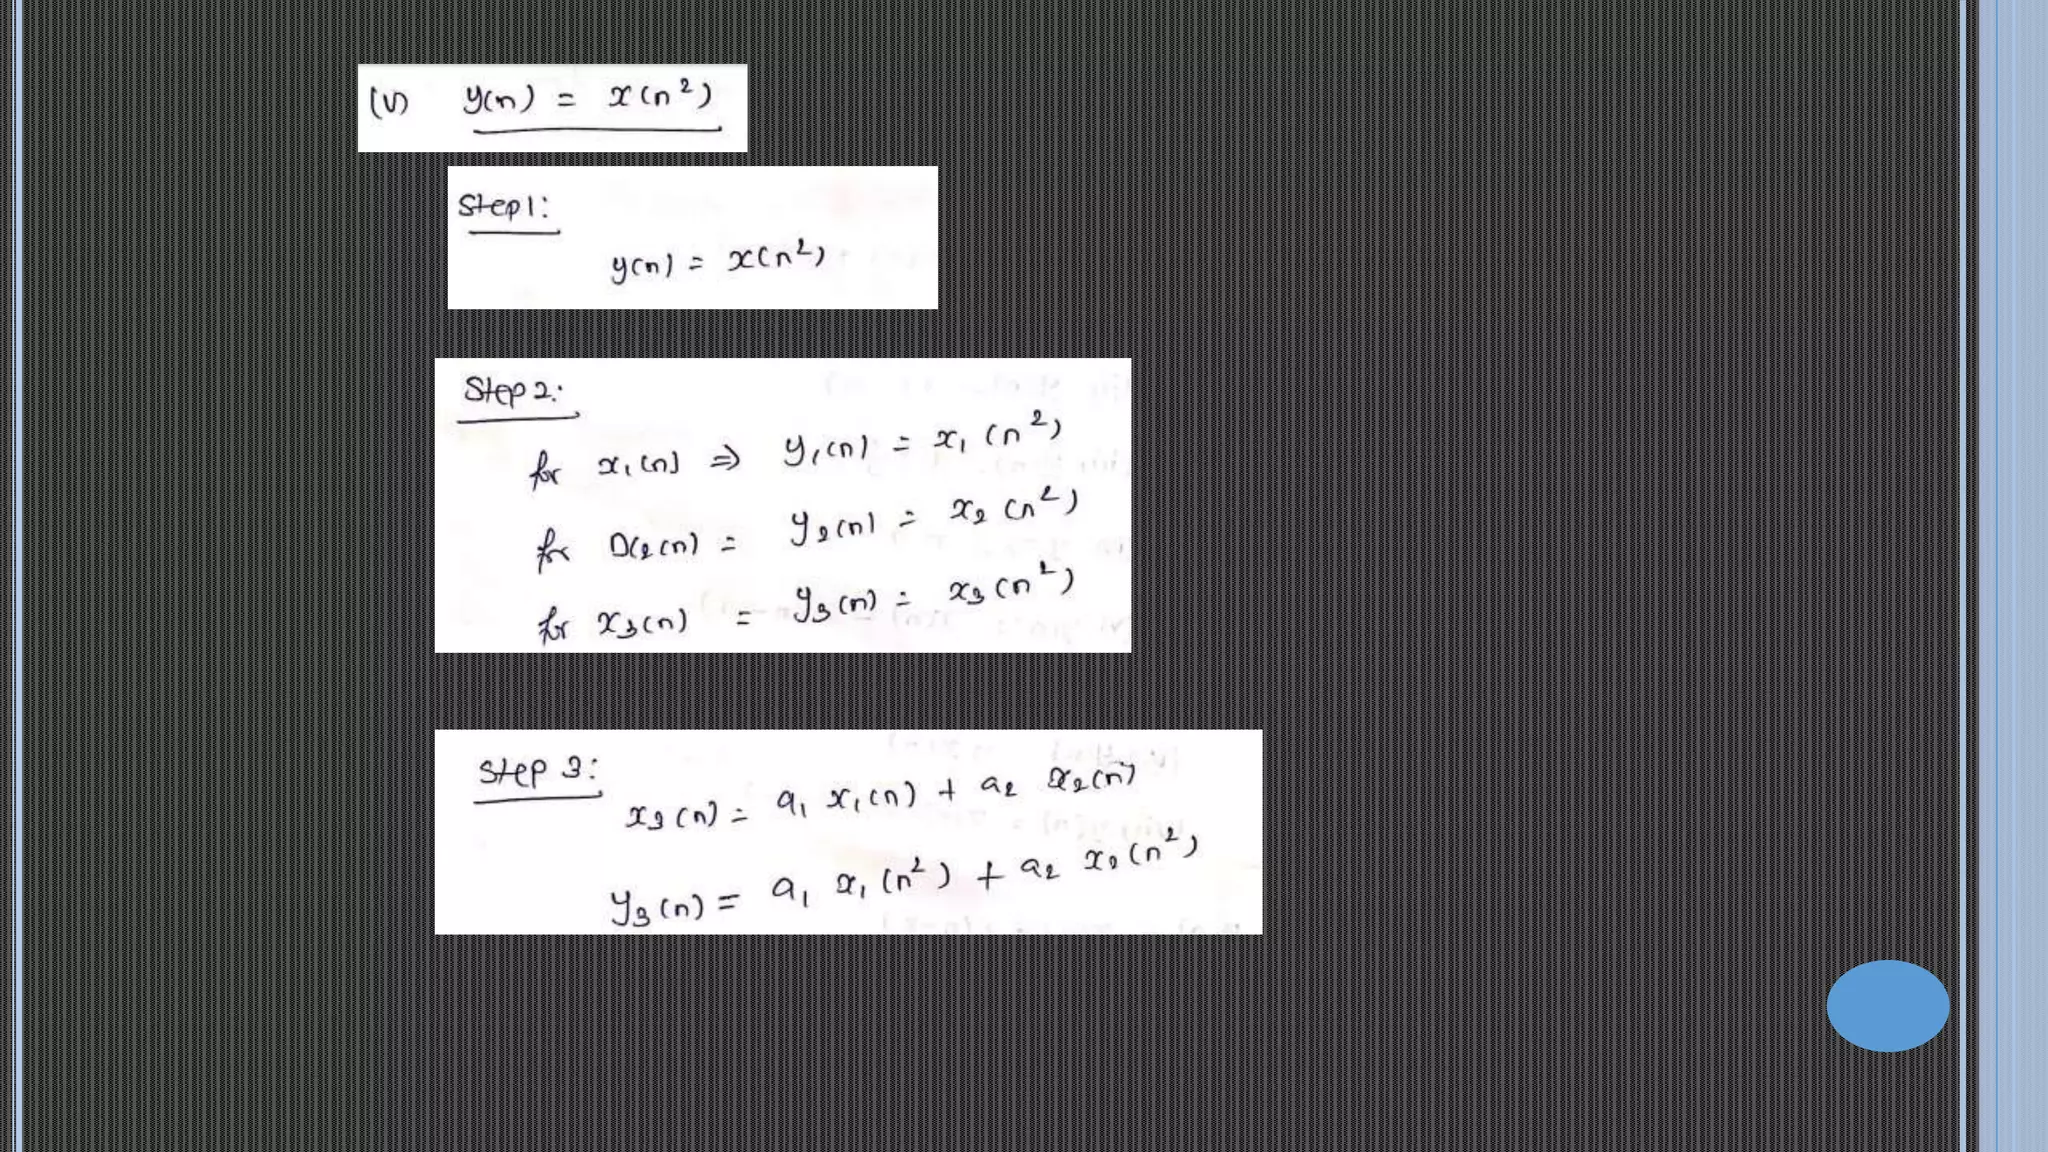 (V) y(n) = x(n²)
Step1:
y(n) = x(n²)
Step2:
for x₁(n) ⇒ y₁(n) = x₁(n²)
for x₂(n) = y₂(n) = x₂(n²)
for x₃(n) = y₃(n) = x₃(n²)
Step 3:
x₃(n) = a₁ x₁(n) + a₂ x₂(n)
y₃(n) = a₁ x₁(n²) + a₂ x₂(n²)